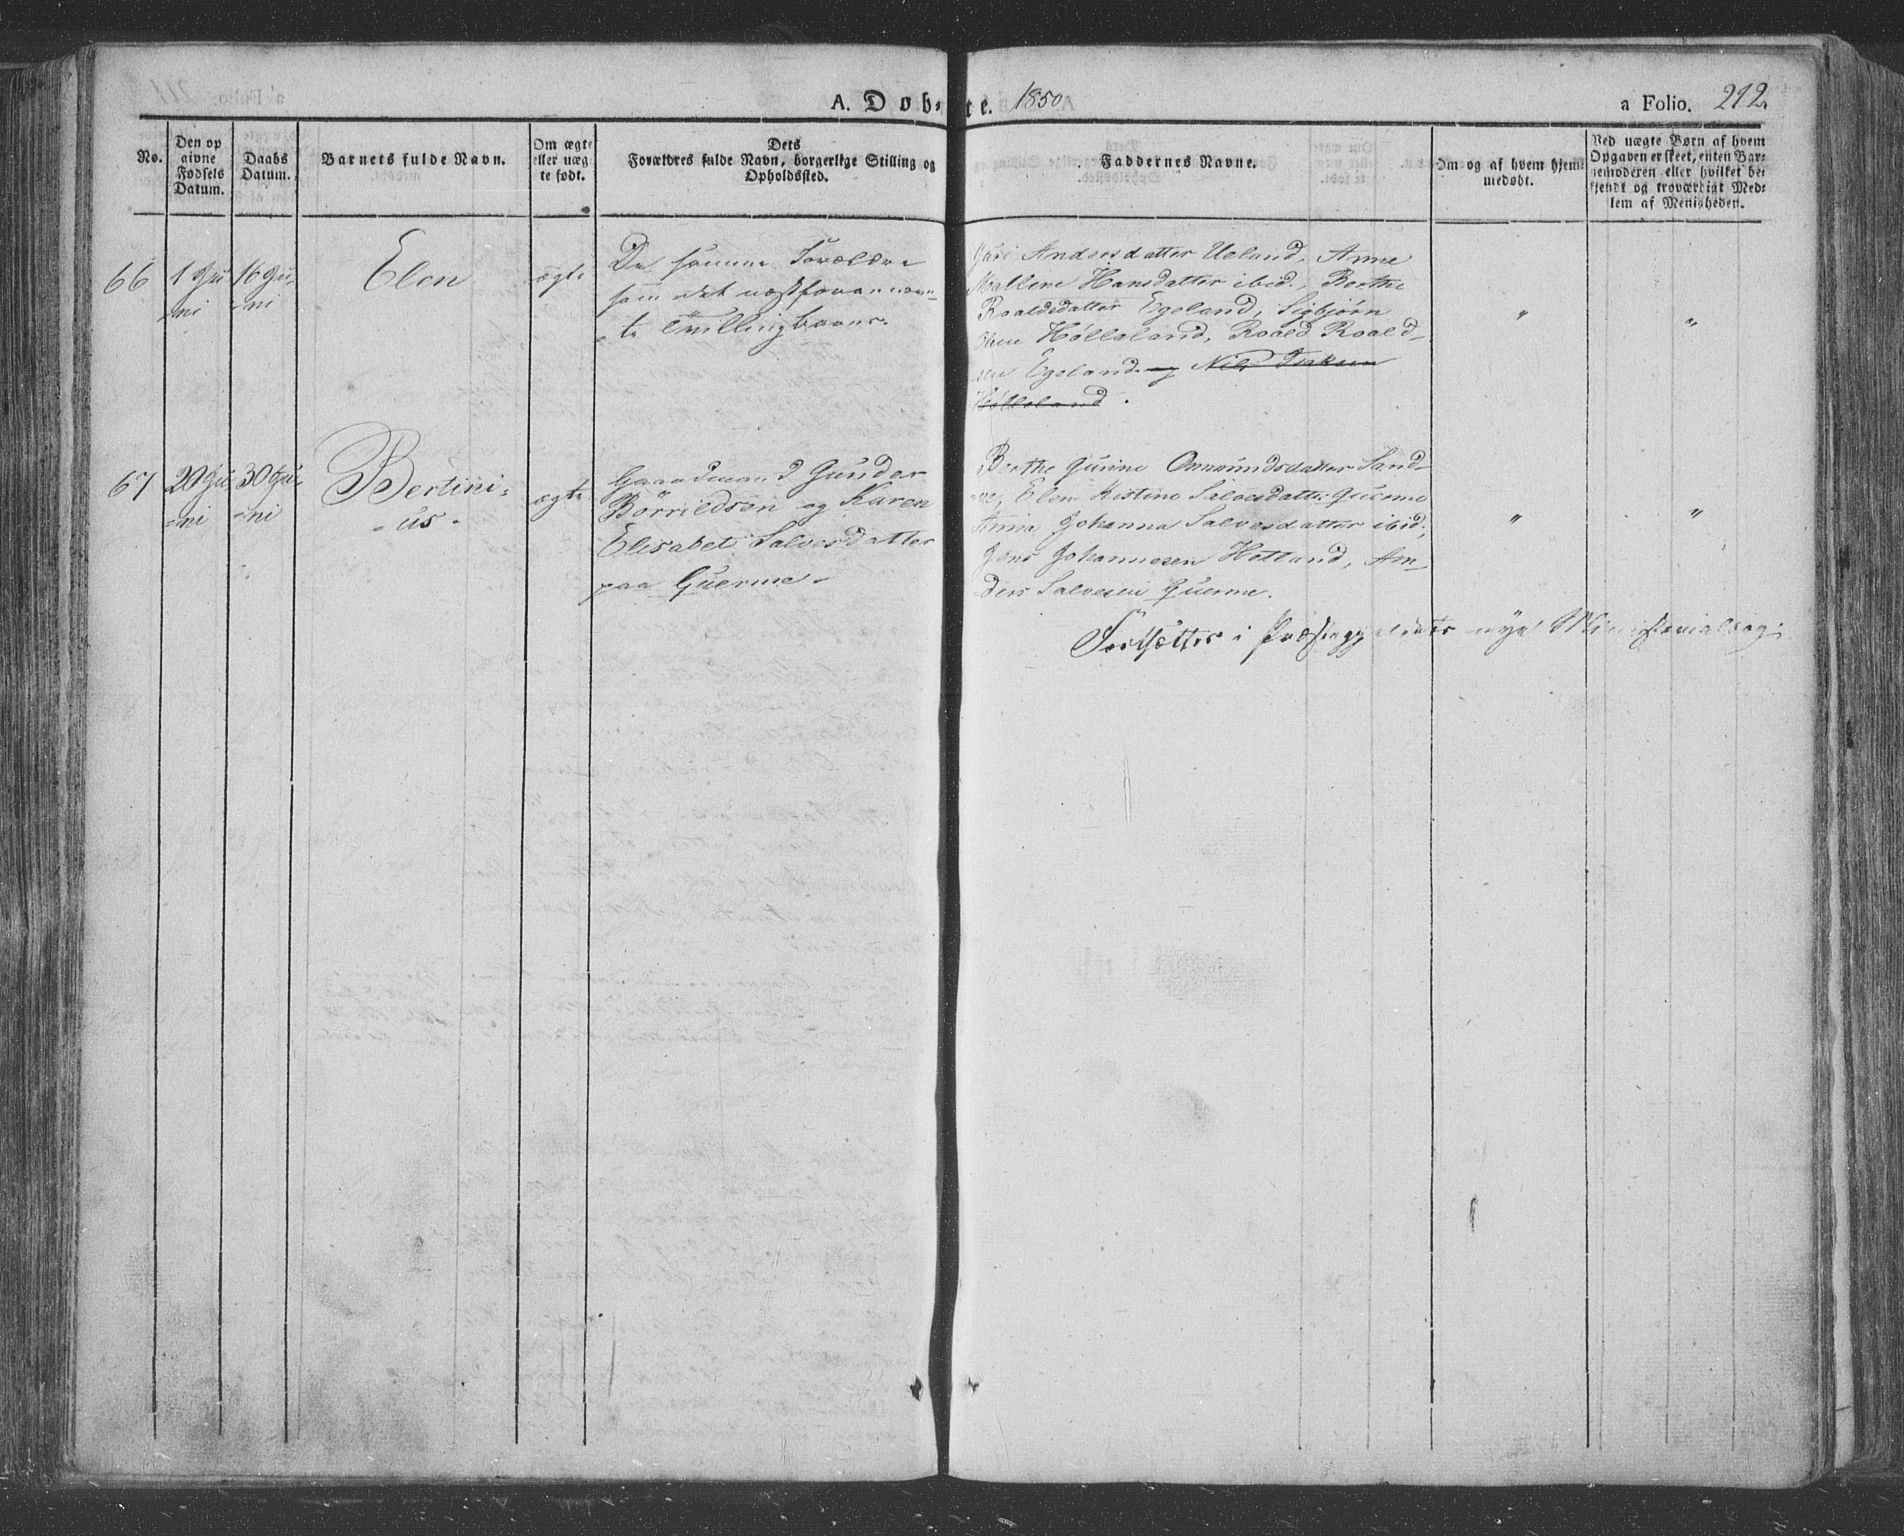 A. Døb- te. 1850
a Folio. 212.
No.
Den op
givne
Fødsels
Datum.
Daabs
Datum.
Barnets fulde Navn.
Om ægte
eller uæg
te født.
Dets
Forældres fulde Navn, borgerlige Stilling og
Opholdssted.
Faddernes Navne.
Om og af hvem hjem
medøbt.
Ved uægte Børn af hvem
Opgaven er skeet, enten Bar-
nemoderen eller hvilket be-
kjendt og troværdigt Med-
lem af Menigheden.
66
1 Ju
-ni
16 Ju-
-ni
Elen
ægte
De samme Forældre
som det næstforannævn-
te Tvillingbarns.
Andersdatter Ueland, Anne
Mallene Hansdatter ibid., Berthe
Roaldsdatter Egeland, Sigbjørn
Olsen Hølleland, Roald Roald-
sen Egeland og Nils
Hølleland.
"
"
67
20 Ju
-ni
30 Ju-
-ni
Bertini-
-us-
ægte
Gaardmand Gunder
Børrildsen og Karen
Elisabet Salvesdatter
paa Guerme.
Berthe Gurine Ommundsdatter Sand-
ne, Elen Kistine Salvesdatter Guerme
Anna Johanna Salvesdatter ibid,
Jens Johannesen Hetland, An-
ders Salvesen Guerme.
"
"
Fortsættes i Præstegjældets nye Ministerialbog.